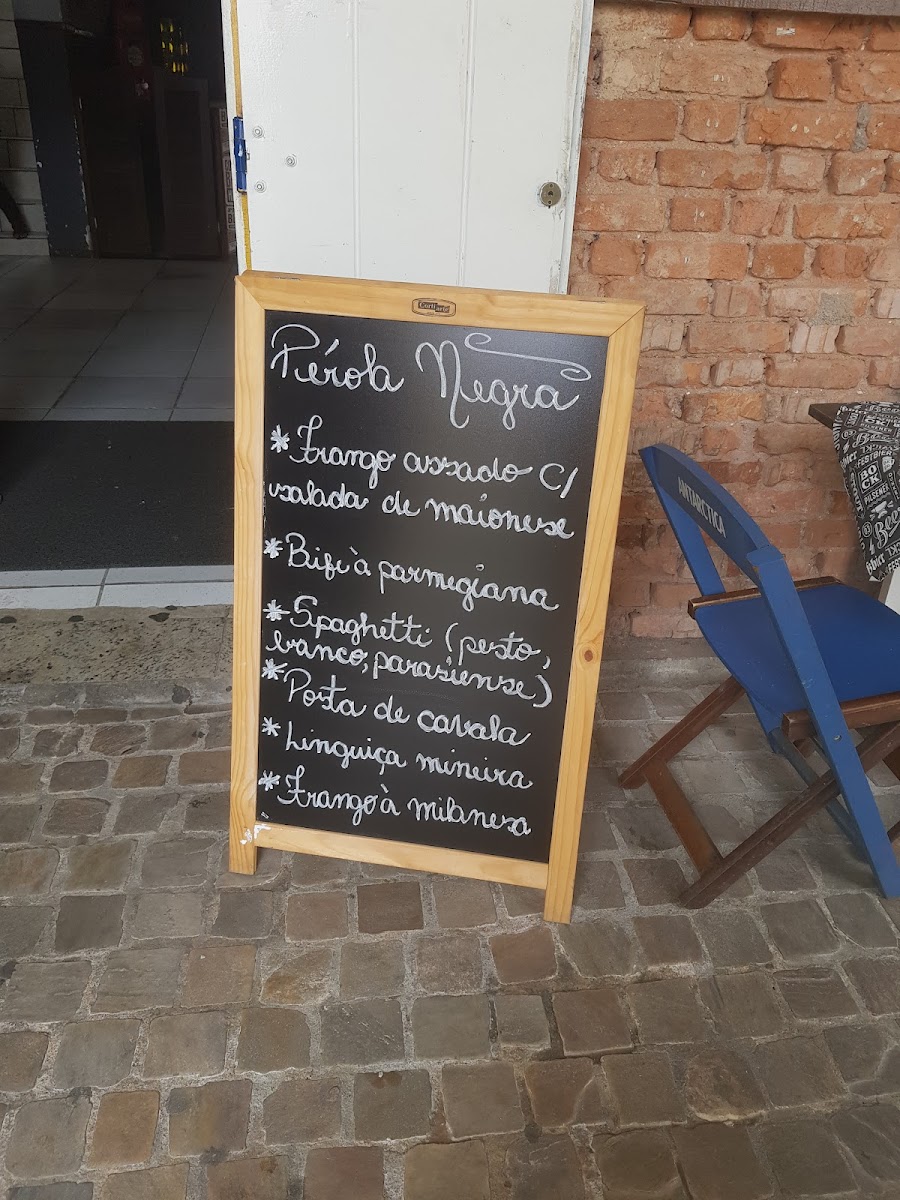 Pérola Negra
* Frango assado c/
salada de maionese
* Bife à parmegiana
* Spaghetti (pesto,
branco, parasiense)
* Posta de cavala
* Linguiça mineira
* Frango à milanesa
ANTARCTICA
BOCK
PILSENER
Beer